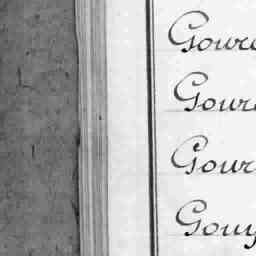 Gourd
Gourd
Gour
Gouy